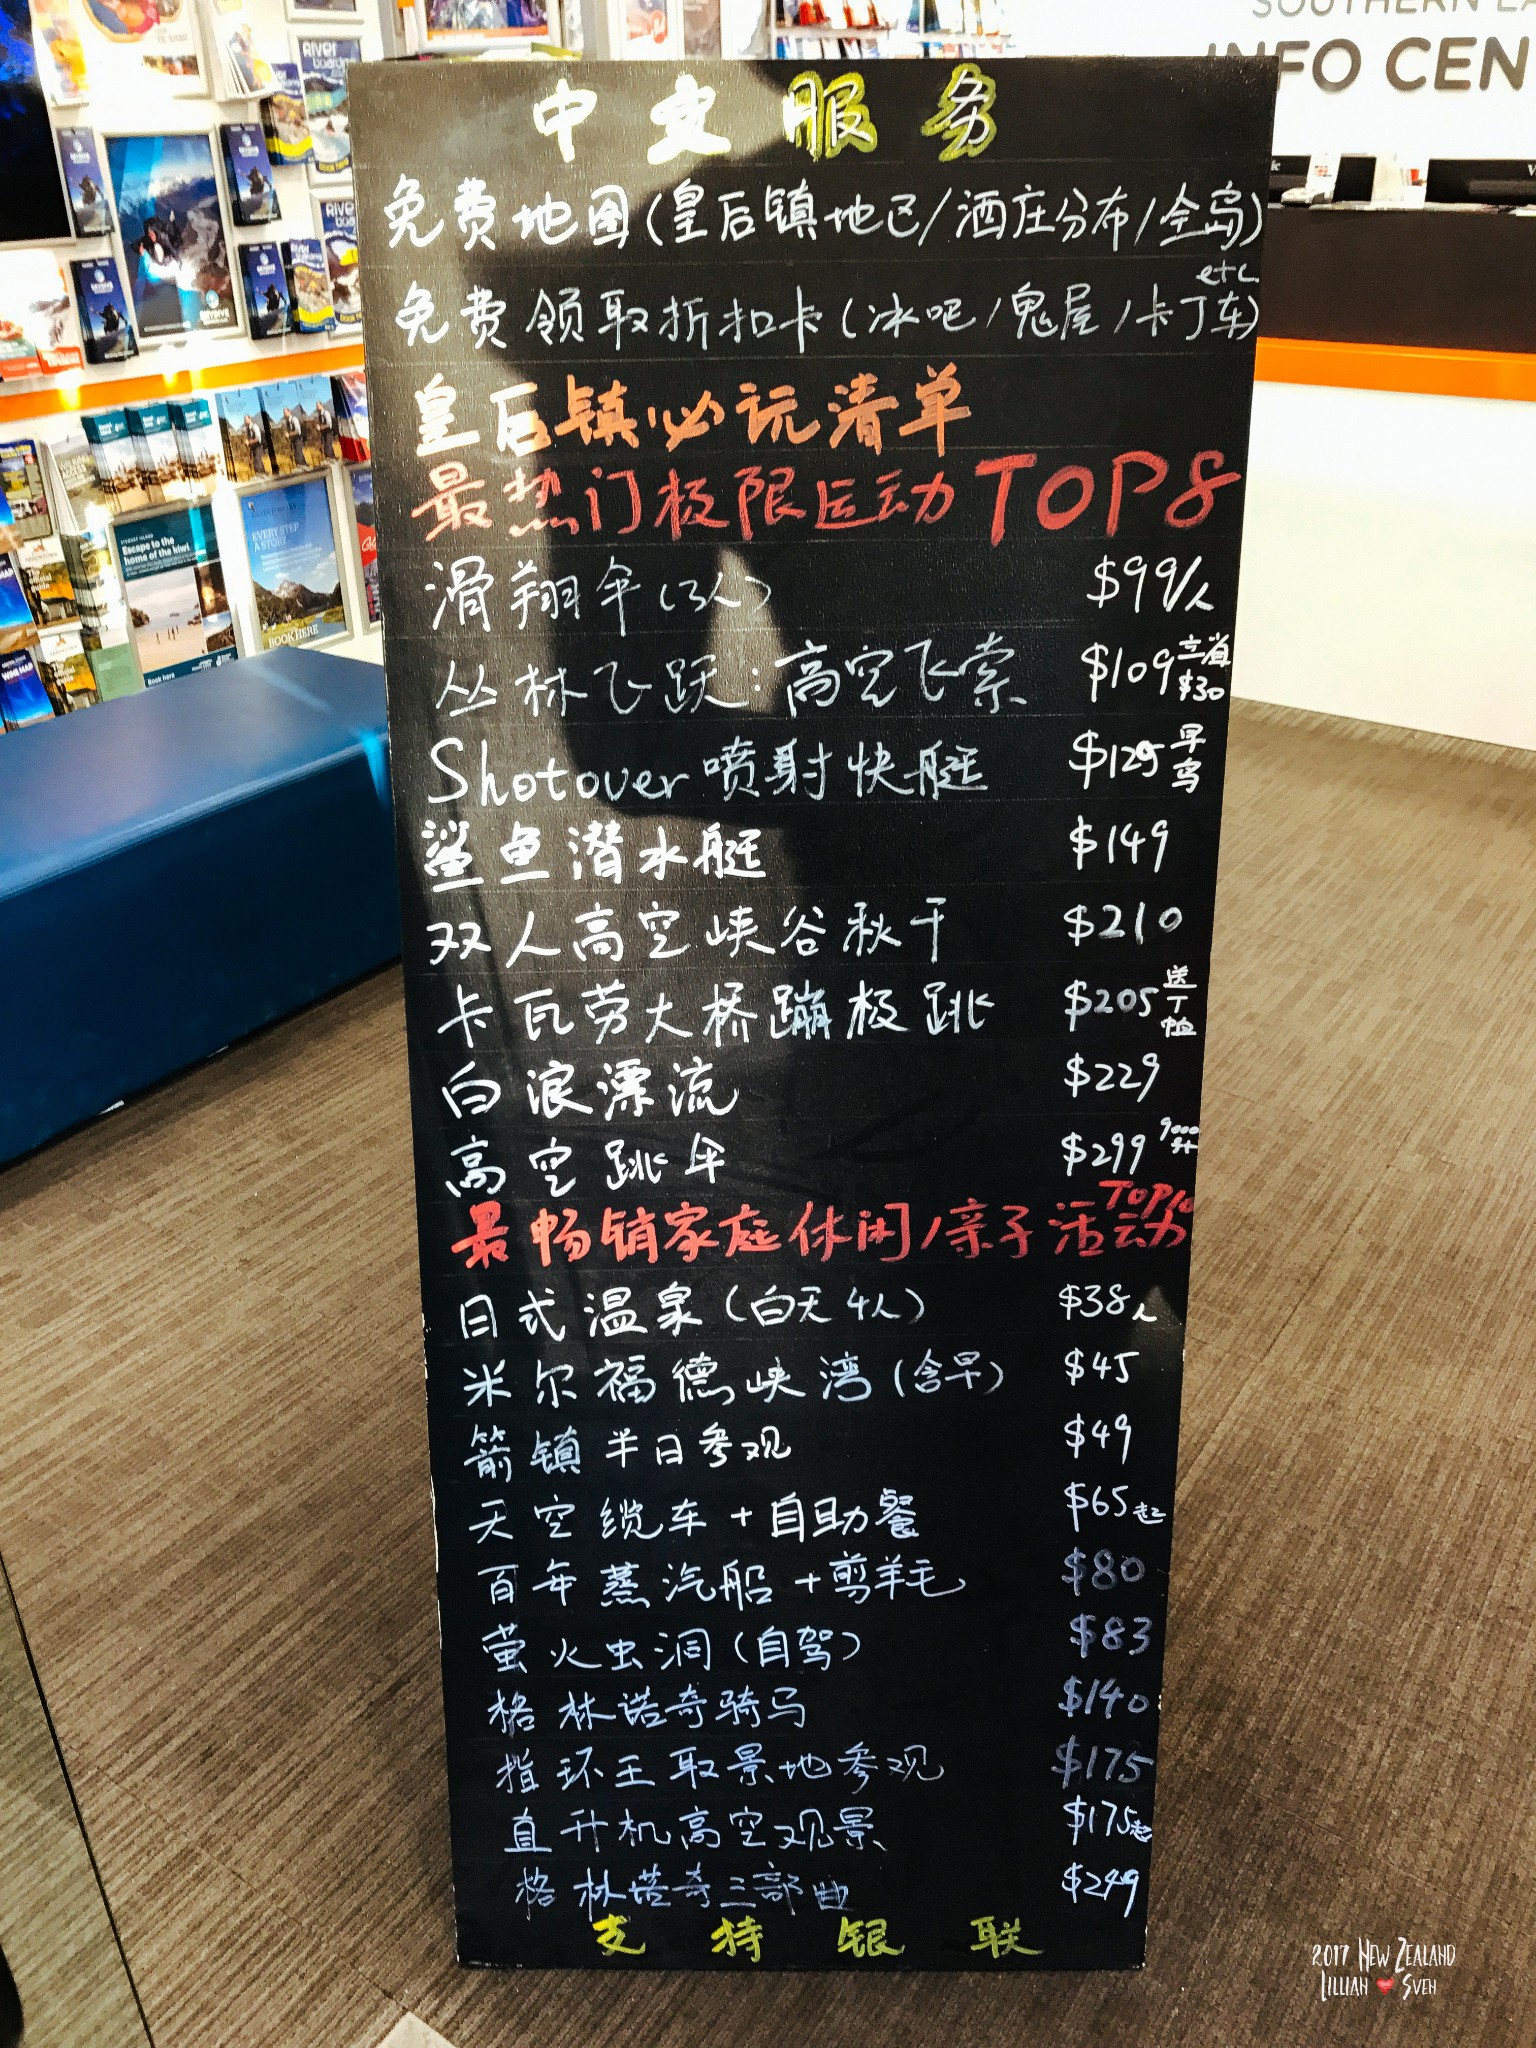 SOUTHERN LA
INFO CEN
中文服务
免费地图(皇后镇地区/酒庄分布/全岛)
免费领取折扣卡(冰吧/鬼屋/卡丁车)etc
皇后镇必玩清单
最热门极限运动TOP8
滑翔伞(3人) $99/人
丛林飞跃:高空飞索 $109立省$30
Shotover喷射快艇 $125早鸟
鲨鱼潜水艇 $149
双人高空峡谷秋千 $210
卡瓦劳大桥蹦极跳 $205送T恤
白浪漂流 $229
高空跳伞 $299 9000尺
最畅销家庭休闲/亲子活动TOP10
日式温泉(白天4人) $38人
米尔福德峡湾(含早) $45
箭镇半日参观 $49
天空缆车+自助餐 $65起
百年蒸汽船+剪羊毛 $80
萤火虫洞(自驾) $83
格林诺奇骑马 $140
指环王取景地参观 $175
直升机高空观景 $175起
格林诺奇三部曲 $249
支持银联
River
boarding
EVERY STEP
A STORY
BOOK HERE
Escape to the
home of the kiwi
Book here
2017 NEW ZEALAND
LILLIAN ❤ SVEN